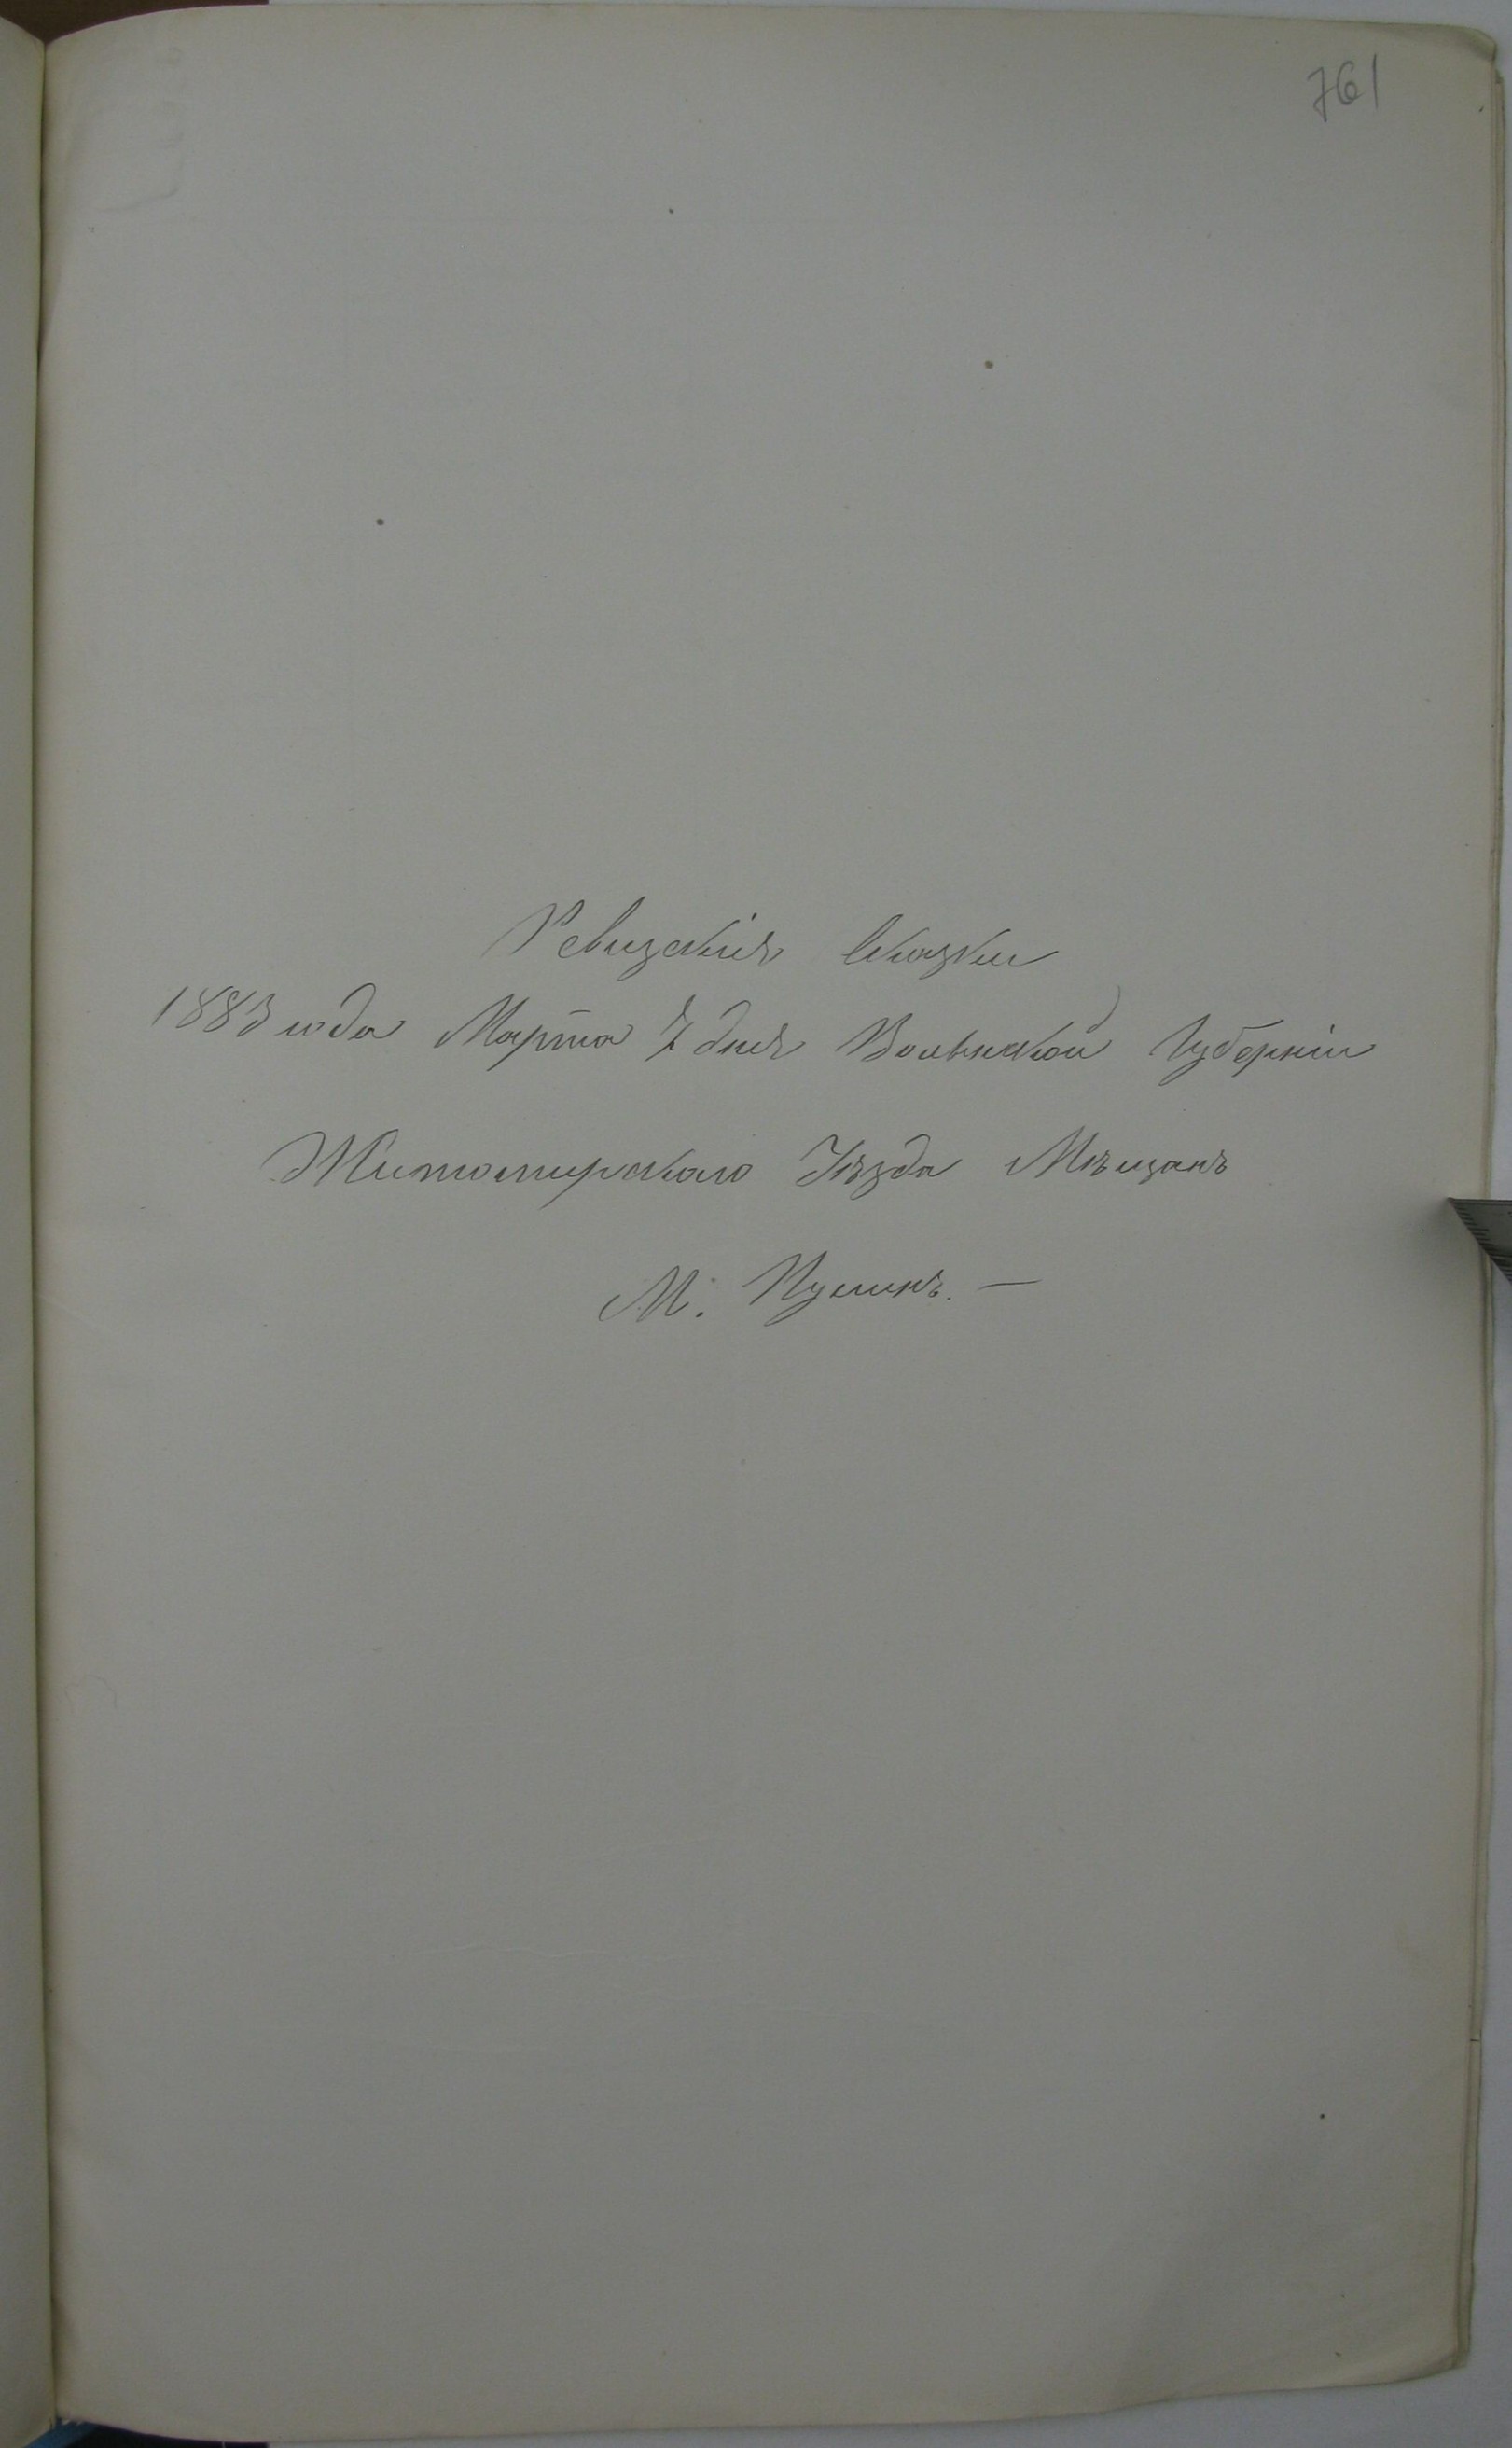 761
Ревизскія Сказки
1883 года Марта 7 дня Волынской Губерніи
Житомирскаго Уѣзда Мѣщанъ
М. Пулинъ. —